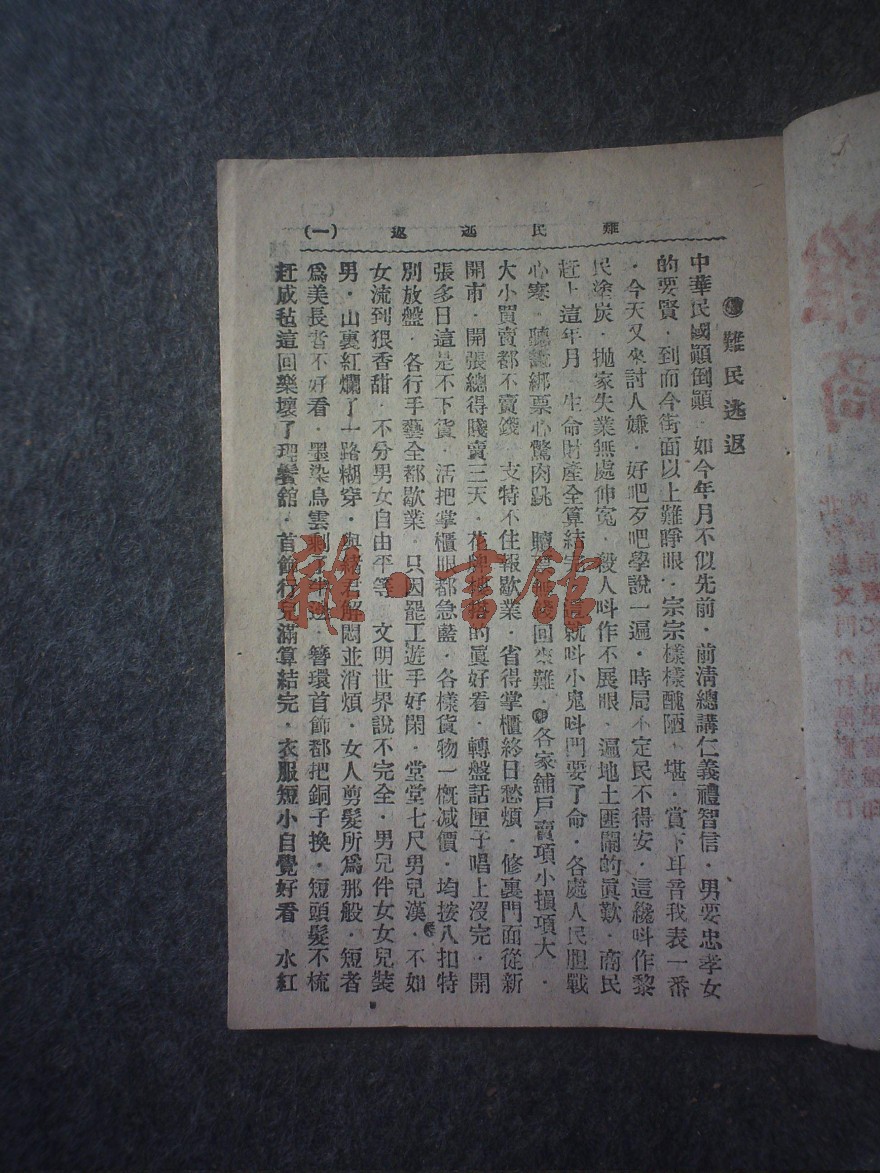 難民逃返（一）
難民逃返
中華民國顚倒顚·如今年月不似先前·前淸總講仁義禮智信·男要忠孝女
的要賢·到而今街面以上難睜眼·宗宗樣樣醜陋·堪·賞下耳音我表一番
·今天又來討人嫌·好吧歹吧學說一遍·時局不定民不得安·這纔呌作黎
民塗炭·抛家失業無處伸寃·殺人呌作不展眼·遍地土匪鬧的眞歎·商民
赶上這年月 生命財產全算結完 這就呌小鬼呌門要了命·各處人民胆戰
心寒·聽說綁票心驚肉跳 贖 回來難·各家舖戶賣項小損項大·
大小買賣都不賣錢 支持不住報歇業·省得掌櫃終日愁煩·修裏門面從新
開市·開張總得賤賣三天·花 的眞好看·轉盤話匣子唱上沒完·開
張多日這是不下貨·活把掌櫃眼都急藍·各樣貨物一槪减價·均按八扣特
別放盤·各行手藝全都歇業 只因罷工遊手好閑·堂堂七尺男兒漢·不如
女流到狠香甜·不分男女自由平等 文明世界說不完全·男兒伴女女兒裝
男·山裏紅爛了一路糊穿·與諸君解悶並消煩·女人剪髮所爲那般·短者
爲美長者不好看·墨染烏雲剩了半邊·簪環首飾都把銅子換·短頭髮不梳
赶成毡這回樂壞了理髮舘·首飾行兒滿算結完·衣服短小自覺好看 水紅
雜·書館